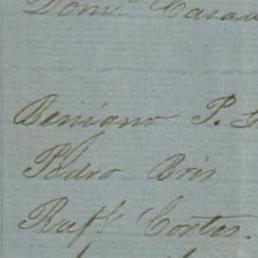 Dom.º Casa
Beniano P. G
Pedro Bris
Raf.l Cortes.